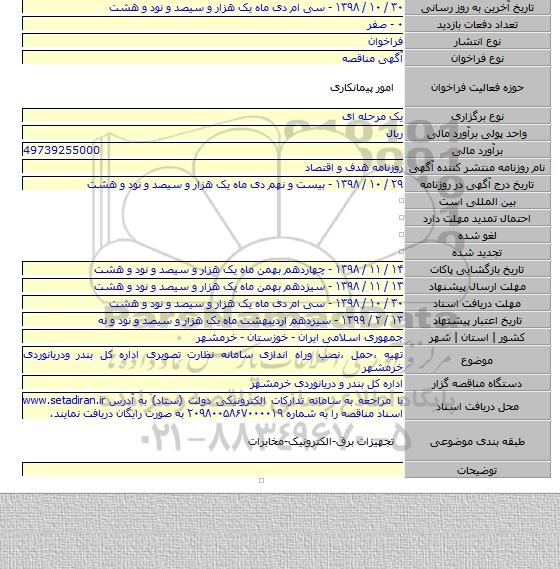 تاریخ آخرین به روز رسانی ۳۰ / ۱۰ / ۱۳۹۸ - سی ام دی ماه یک هزار و سیصد و نود و هشت
تعداد دفعات بازدید ۰ - صفر
نوع انتشار فراخوان
نوع فراخوان آگهی مناقصه
حوزه فعالیت فراخوان امور پیمانکاری
نوع برگزاری یک مرحله ای
واحد پولی برآورد مالی ریال
برآورد مالی 49739255000
نام روزنامه منتشر کننده آگهی روزنامه هدف و اقتصاد
تاریخ درج آگهی در روزنامه ۲۹ / ۱۰ / ۱۳۹۸ - بیست و نهم دی ماه یک هزار و سیصد و نود و هشت
بین المللی است
احتمال تمدید مهلت دارد
لغو شده
تجدید شده
تاریخ بازگشایی پاکات ۱۴ / ۱۱ / ۱۳۹۸ - چهاردهم بهمن ماه یک هزار و سیصد و نود و هشت
مهلت ارسال پیشنهاد ۱۳ / ۱۱ / ۱۳۹۸ - سیزدهم بهمن ماه یک هزار و سیصد و نود و هشت
مهلت دریافت اسناد ۳۰ / ۱۰ / ۱۳۹۸ - سی ام دی ماه یک هزار و سیصد و نود و هشت
تاریخ اعتبار پیشنهاد ۱۳ / ۲ / ۱۳۹۹ - سیزدهم اردیبهشت ماه یک هزار و سیصد و نود و نه
کشور | استان | شهر جمهوری اسلامی ایران - خوزستان - خرمشهر
موضوع تهیه ،حمل ،نصب وراه اندازی سامانه نظارت تصویری اداره کل بندر ودریانوردی
خرمشهر
دستگاه مناقصه گزار اداره کل بندر و دریانوردی خرمشهر
محل دریافت اسناد با مراجعه به سامانه تدارکات الکترونیکی دولت (ستاد) به آدرس www.setadiran.ir
اسناد مناقصه را به شماره ۲۰۹۸۰۰۵۸۶۷۰۰۰۰۱۹ به صورت رایگان دریافت نمایند.
طبقه بندی موضوعی تجهیزات برق-الکترونیک-مخابرات
توضیحات
۰۲۱-۸۸۳۴۹۶۷۰-۵